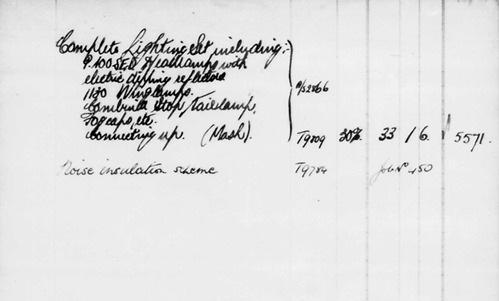 Complete Lighting Set including:-
P.100 S.E.D. Headlamps with
electric dipping reflectors
1130 Wing lamps.
Combined Stop Tail lamp,
etc.
Connecting up. (Mash). T9809 30% 33 1 6. 5571.
Noise insulation scheme T9784 Job No 450